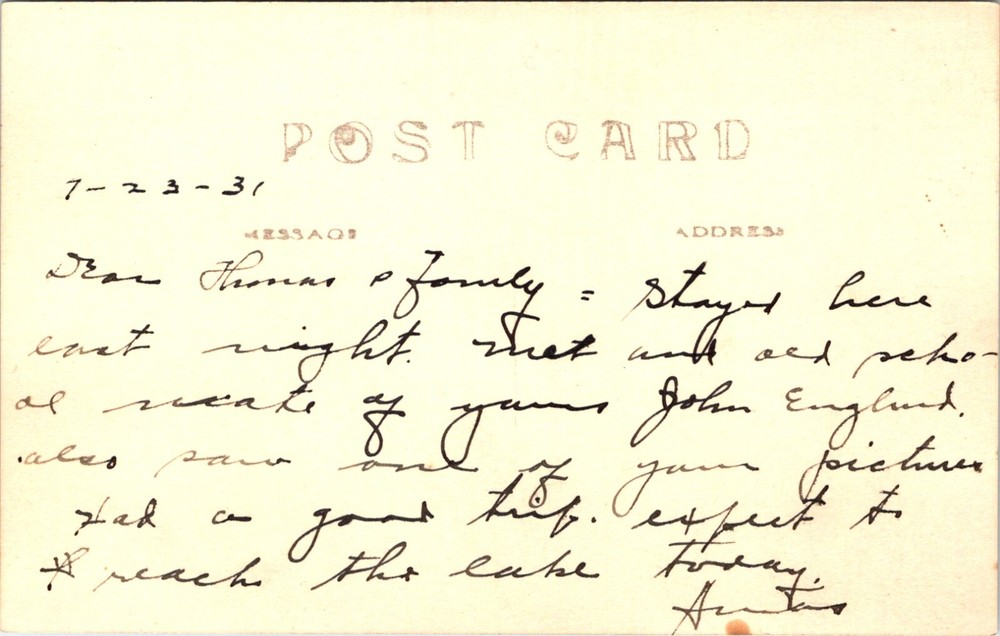 POST CARD
7-23-31
MESSAGE ADDRESS
Dear Thomas & Family = Stayed here
last night. Met and old scho-
ol mate of yours John Englund.
also saw one of your pictures
Had a good trip. expect to
reach the lake today.